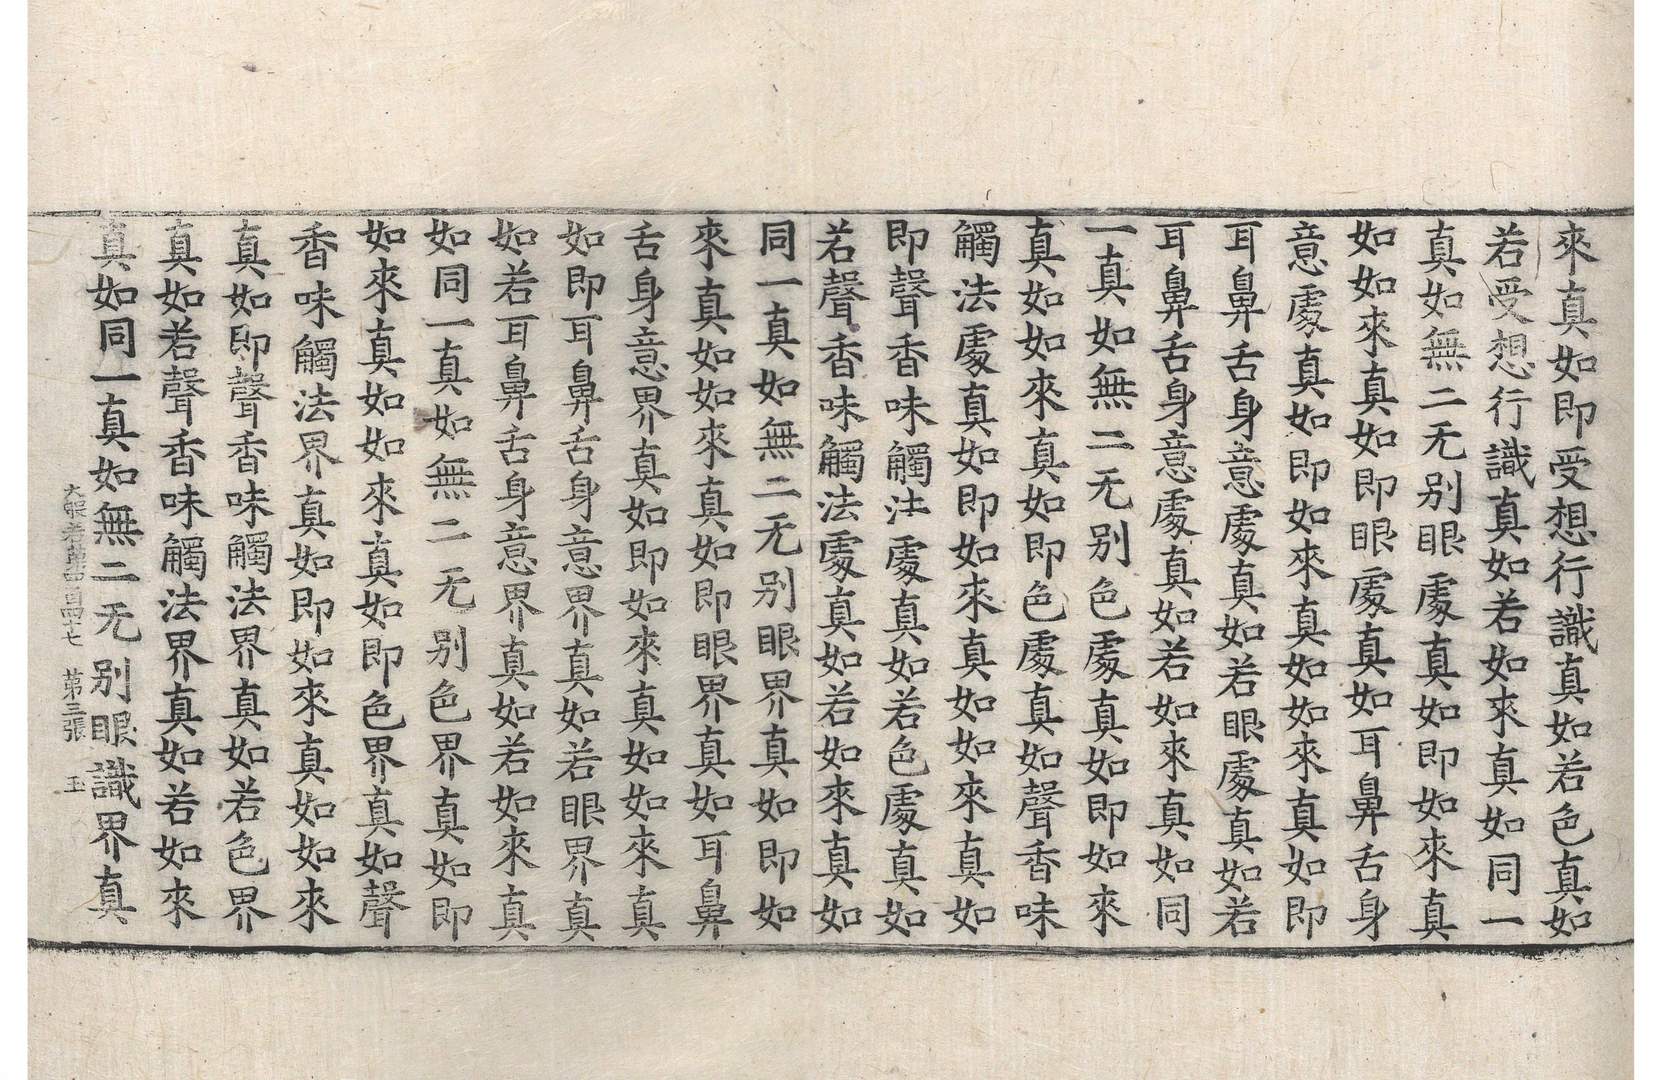 來真如即受想行識真如若色真如
若受想行識真如若如來真如同一
真如無二无别眼處真如即如來真
如如來真如即眼處真如耳鼻舌身
意處真如即如來真如如來真如即
耳鼻舌身意處真如若眼處真如若
耳鼻舌身意處真如若如來真如同
一真如無二无别色處真如即如來
真如如來真如即色處真如聲香味
觸法處真如即如來真如如來真如
即聲香味觸法處真如若色處真如
若聲香味觸法處真如若如來真如
同一真如無二无别眼界真如即如
來真如如來真如即眼界真如耳鼻
舌身意界真如即如來真如如來真
如即耳鼻舌身意界真如若眼界真
如若耳鼻舌身意界真如若如來真
如同一真如無二无别色界真如即
如來真如如來真如即色界真如聲
香味觸法界真如即如來真如如來
真如即聲香味觸法界真如若色界
真如若聲香味觸法界真如若如來
真如同一真如無二无别眼識界真
大般若第四百四十七 第三張 玉